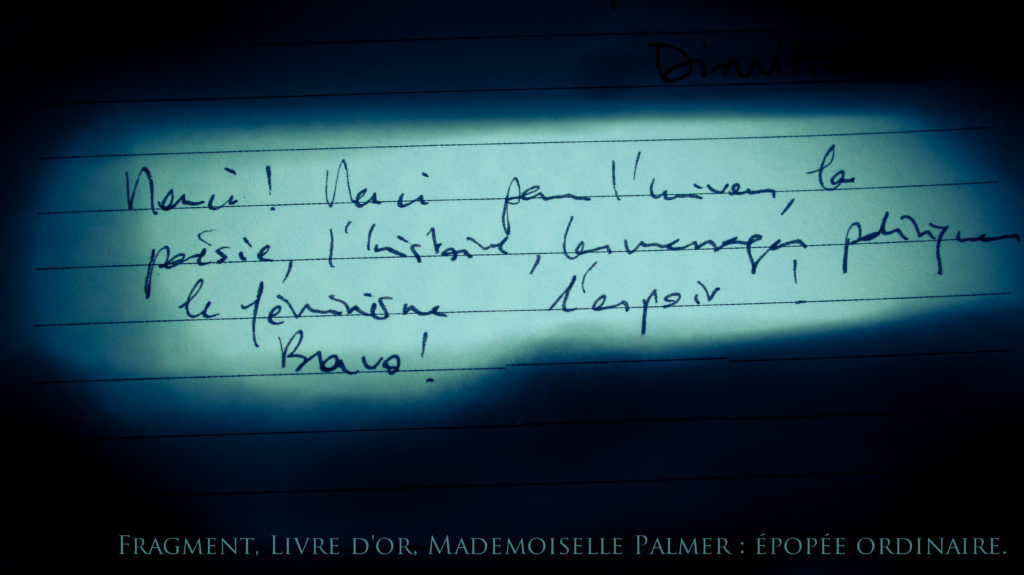 Merci! Merci pour l'univers, la
poésie, l'histoire, les messages politiques
le féminisme l'espoir !
Bravo!
FRAGMENT, LIVRE D'OR, MADEMOISELLE PALMER : ÉPOPÉE ORDINAIRE.